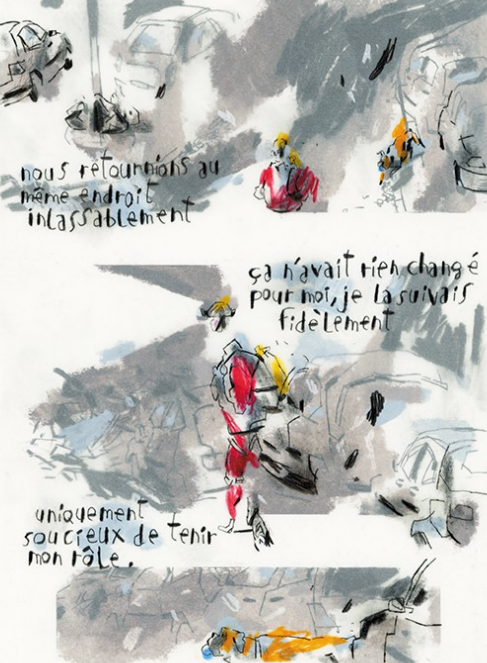 nous retournions au
même endroit
inlassablement
ça n'avait rien changé
pour moi, je la suivais
fidèlement
uniquement
soucieux de tenir
mon rôle.